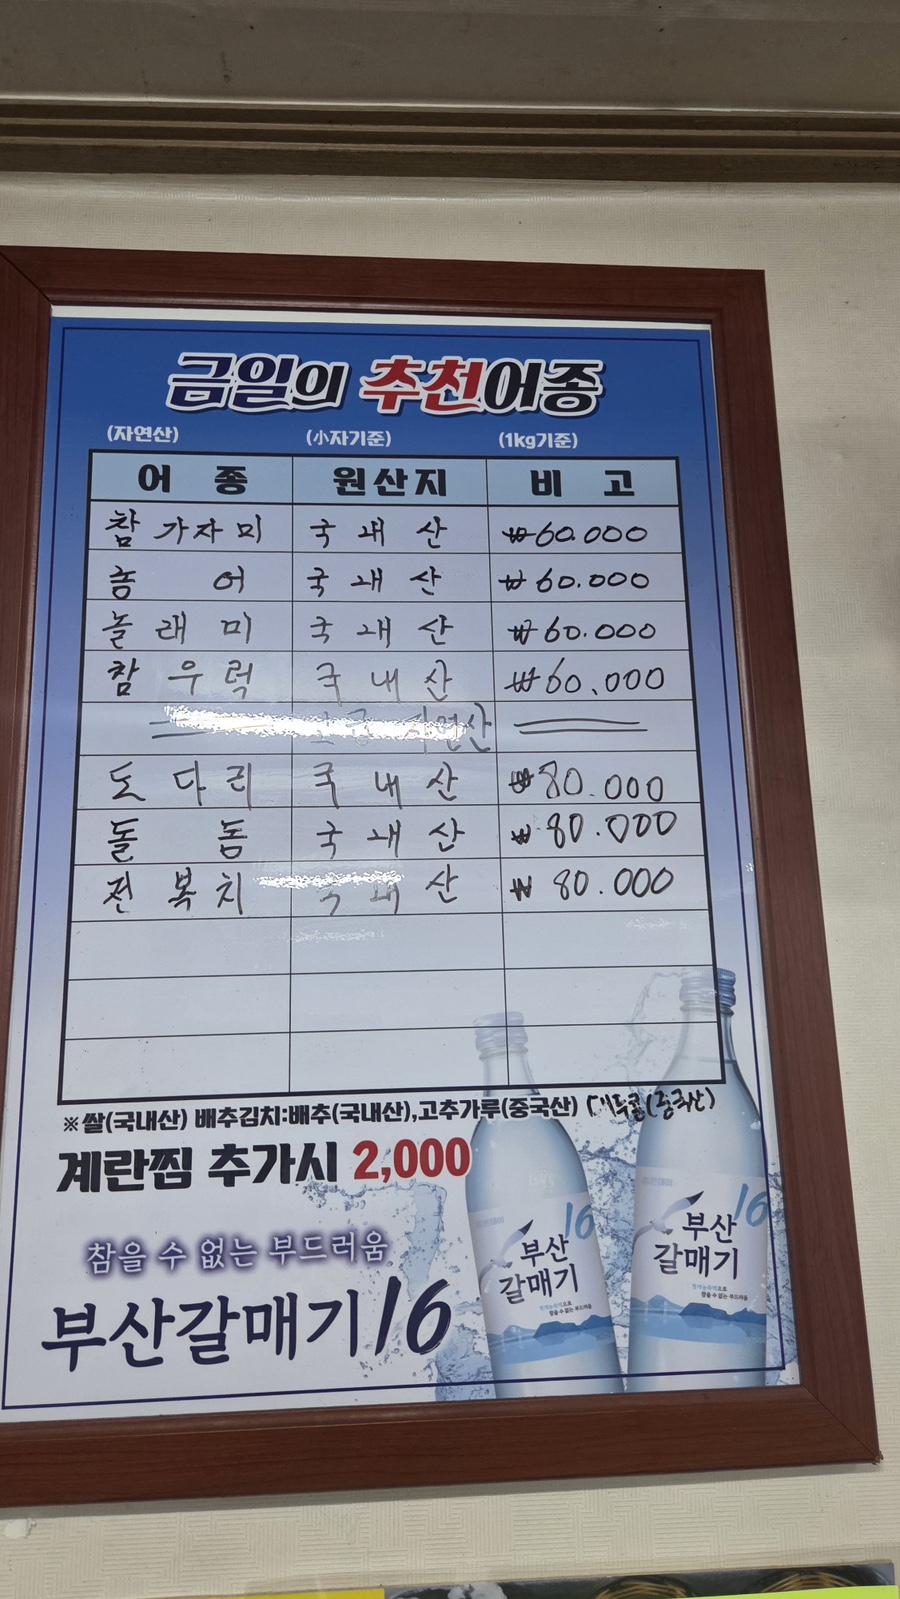 금일의 추천어종
(자연산) (小자기준) (1kg기준)
어 종 원산지 비 고
참 가자미 국내산 ₩60.000
농어 국내산 ₩60.000
놀래미 국내산 ₩60.000
참 우럭 국내산 ₩60.000
고급 자연산
도다리 국내산 ₩80.000
돌돔 국내산 ₩80.000
전복치 국내산 ₩80.000
※쌀(국내산) 배추김치:배추(국내산),고추가루(중국산) (중국산)
계란찜 추가시 2,000
참을 수 없는 부드러움
부산갈매기16
16
부산
갈매기
참을 수 없는 부드러움
16
부산
갈매기
참을 수 없는 부드러움